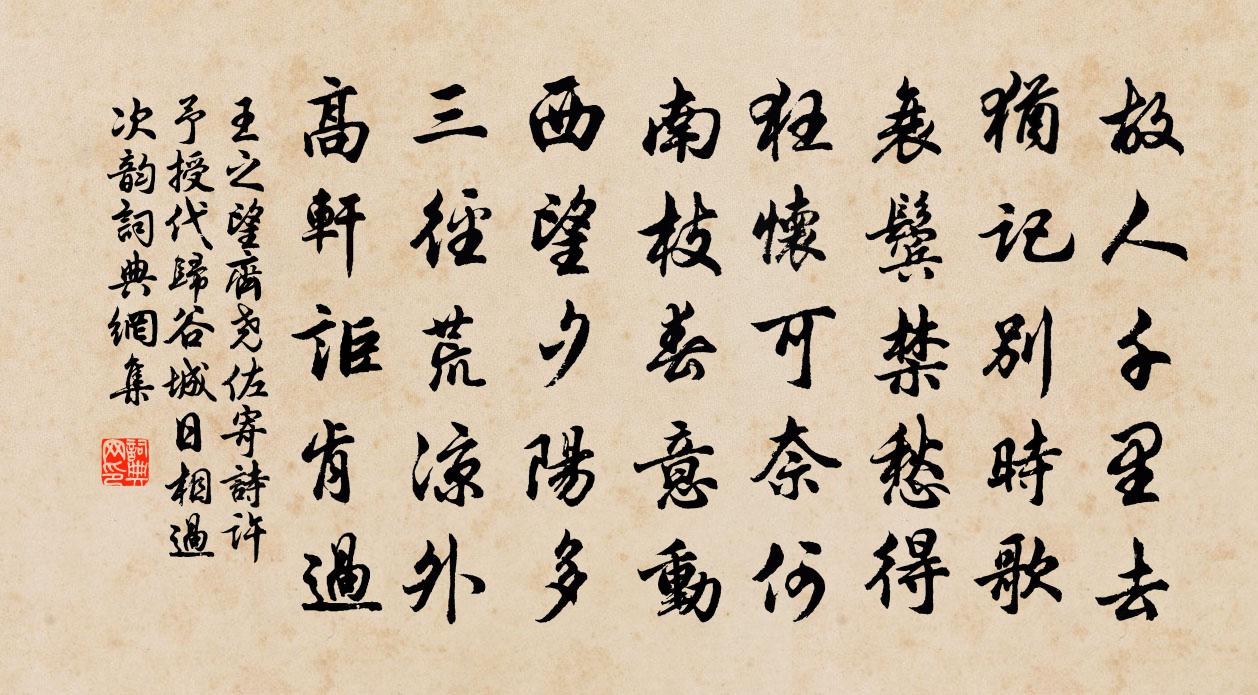 故人千里去
猶記別時歌
衰鬢禁愁得
狂懷可奈何
南枝春意動
西望夕陽多
三徑荒涼外
高軒詎肯過
王之望齊尧佐寄詩許
予授代歸谷城日相過
次韵詞典網集
詞典网印